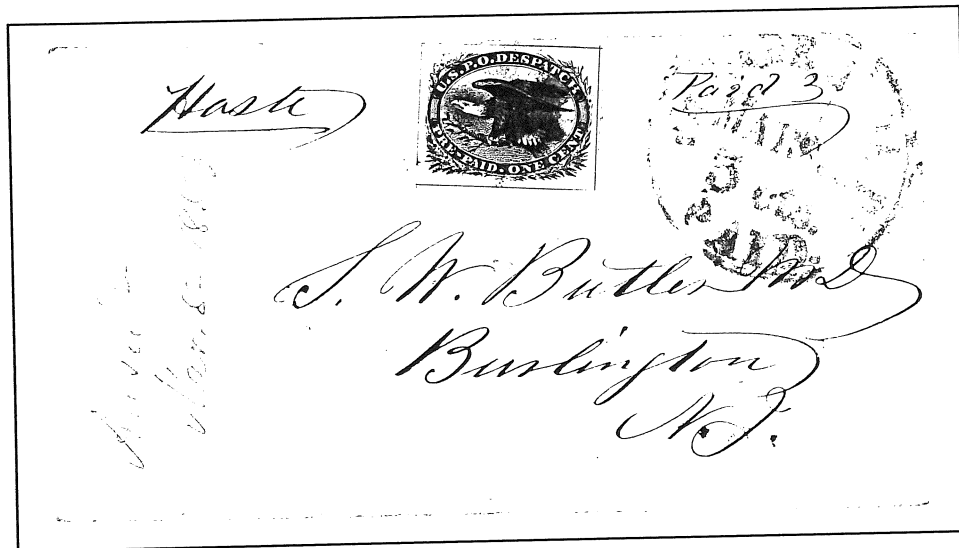 Haste
U.S.P.O. DESPATCH
PRE-PAID. ONE CENT
Paid 3
MAR
5
S. W. Butler M D
Burlington
N. J.
Mar. 8